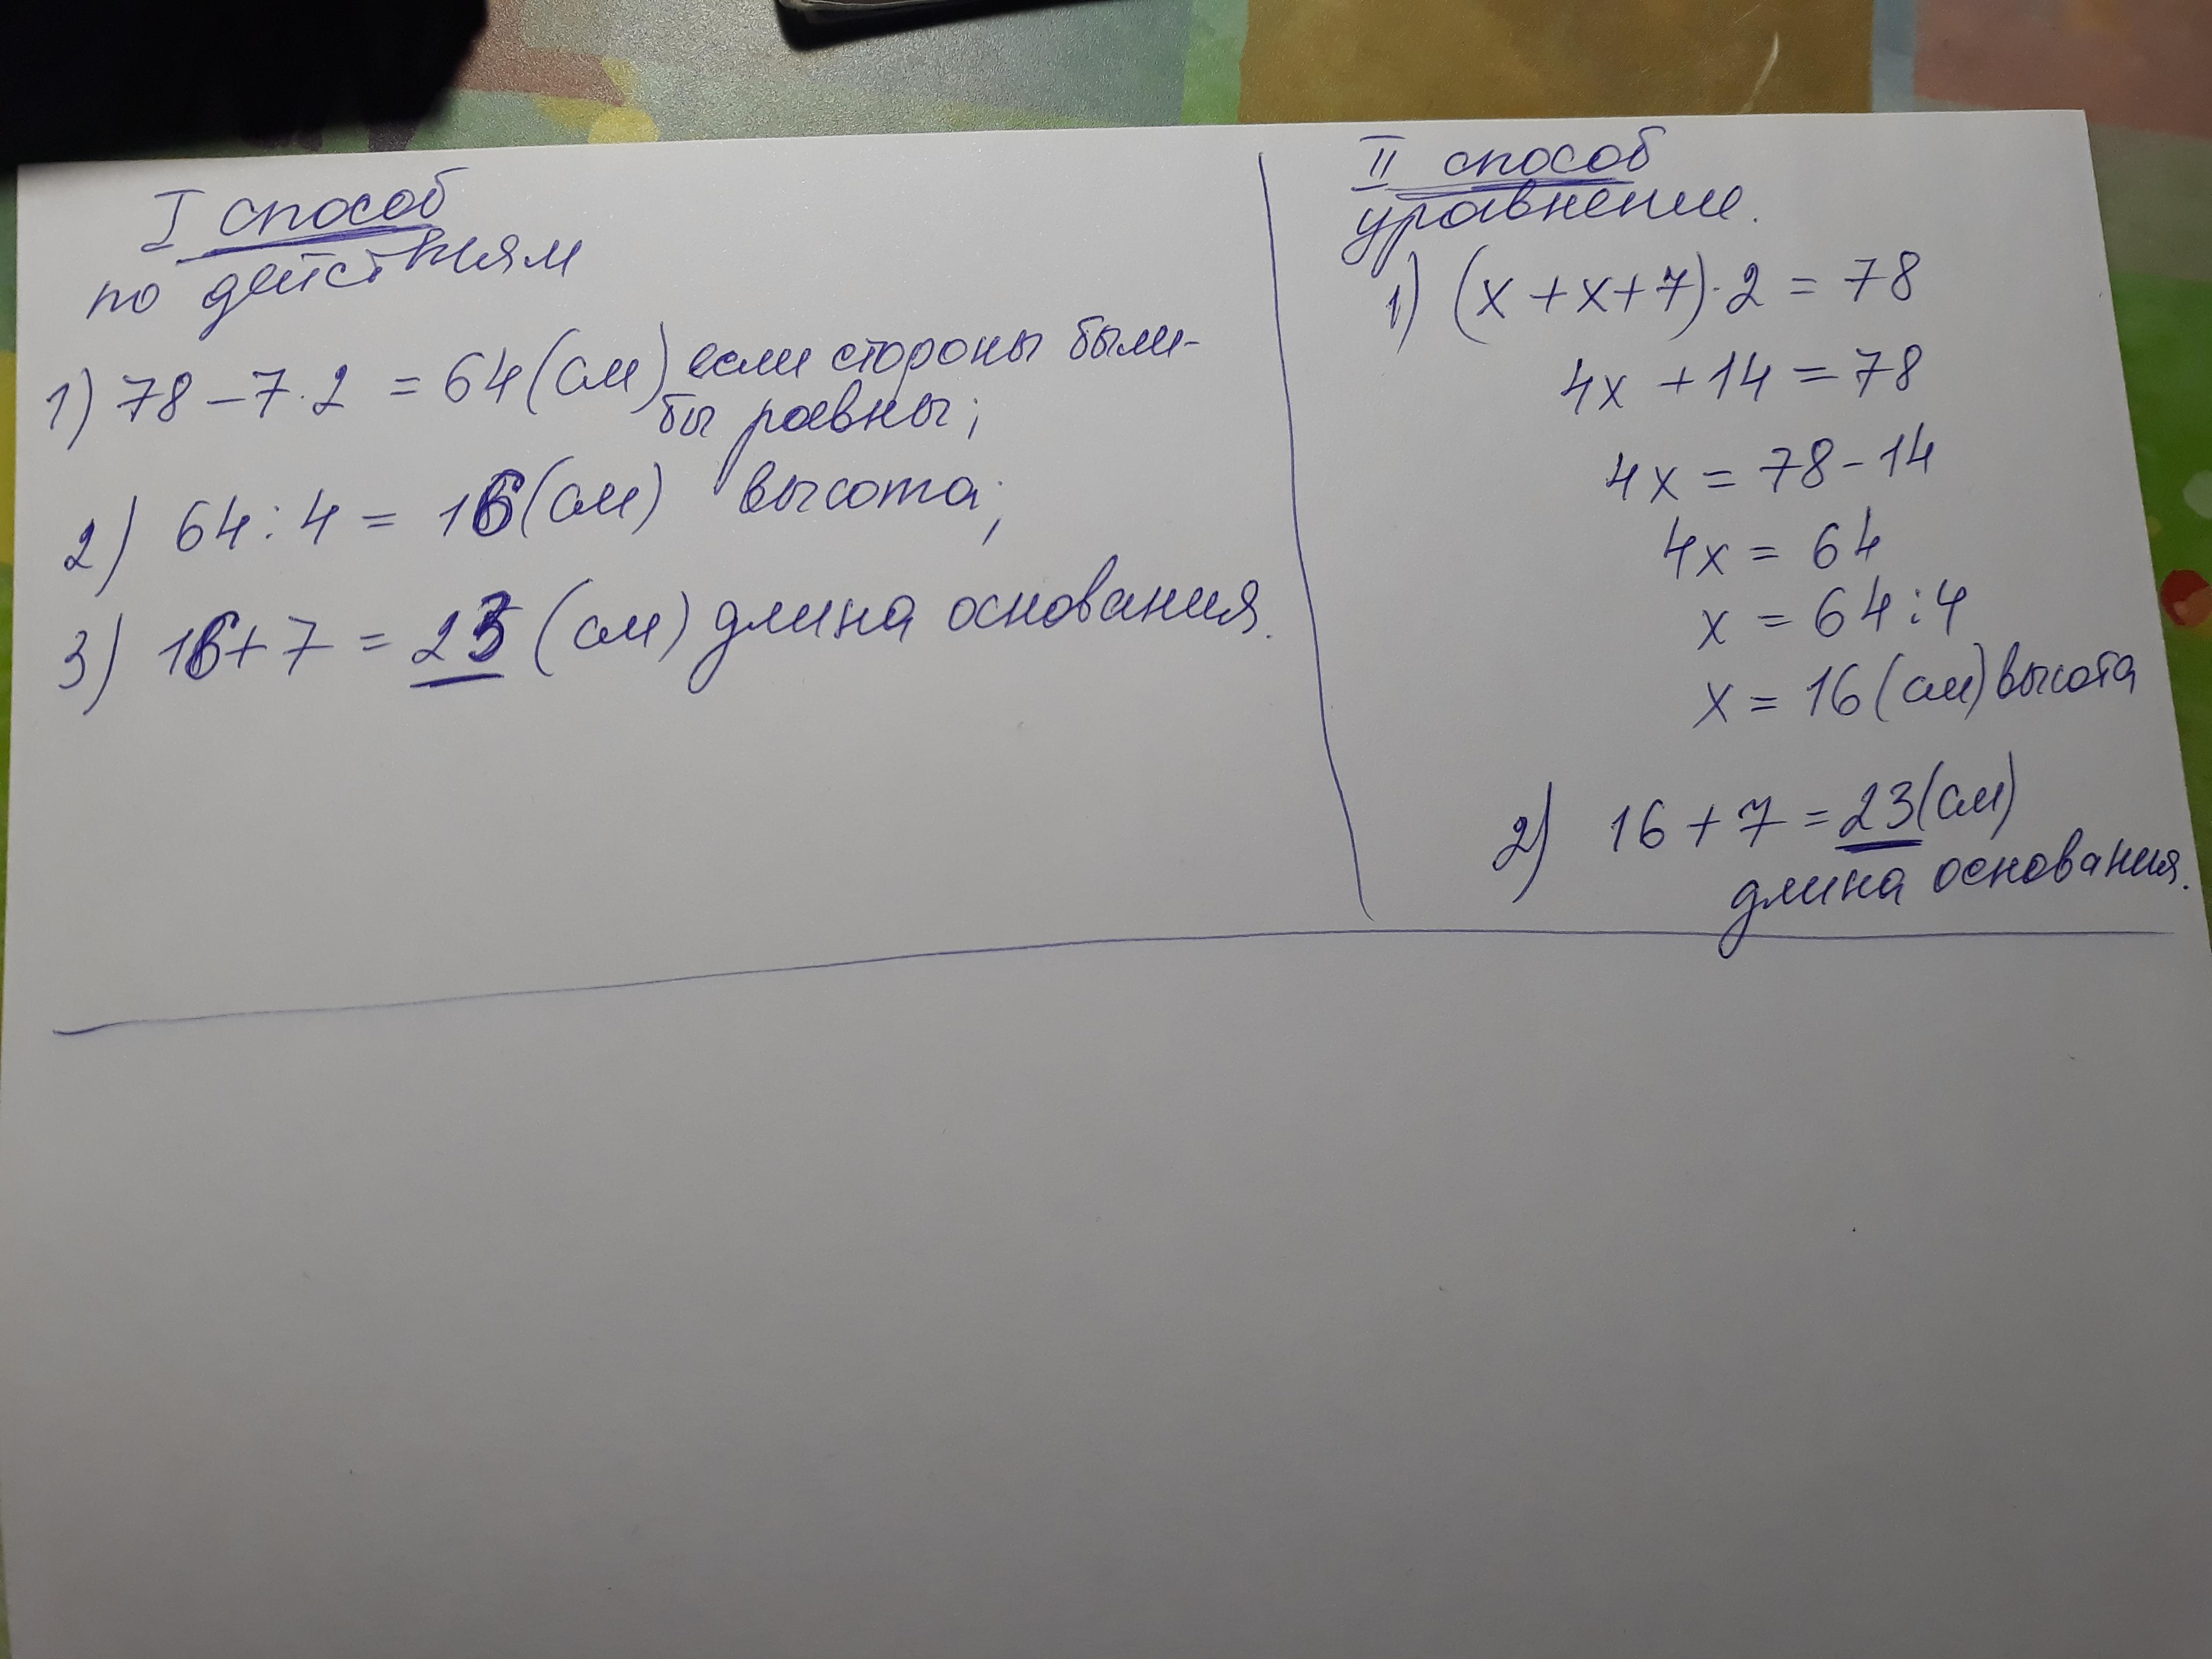 I способ
по действиям
1) 78 - 7 · 2 = 64 (см) если стороны были-
бы равны;
2) 64 : 4 = 16 (см) высота;
3) 16 + 7 = 23 (см) длина основания.
II способ
уравнение.
1) (x + x + 7) · 2 = 78
4x + 14 = 78
4x = 78 - 14
4x = 64
x = 64 : 4
x = 16 (см) высота
2) 16 + 7 = 23 (см)
длина основания.